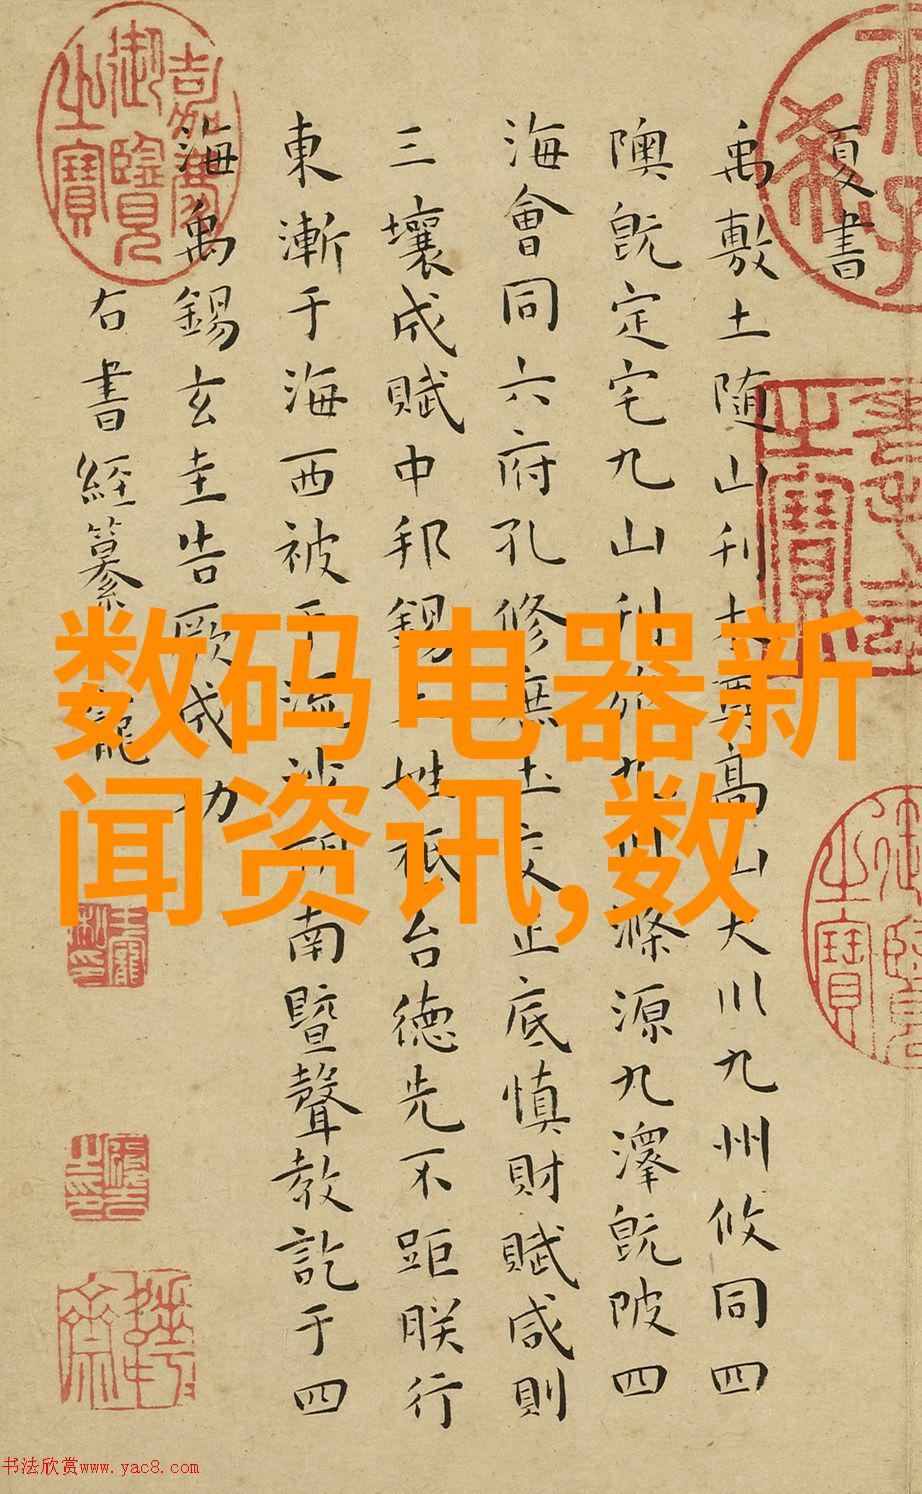 夏書
禹敷土随山刊木奠高山大川九州攸同四
隩既定宅九山刊旅九川滌源九澤既陂四
海會同六府孔修庶土交正底慎財賦咸則
三壤成賦中邦錫土姓祗台德先不距朕行
東漸于海西被于流沙朔南暨聲教訖于四
海禹錫玄圭告厥成功
右書經纂 寵
嘉慶
御覽
之寶
数码电器新
闻资讯,数
书法欣赏www.yac8.com